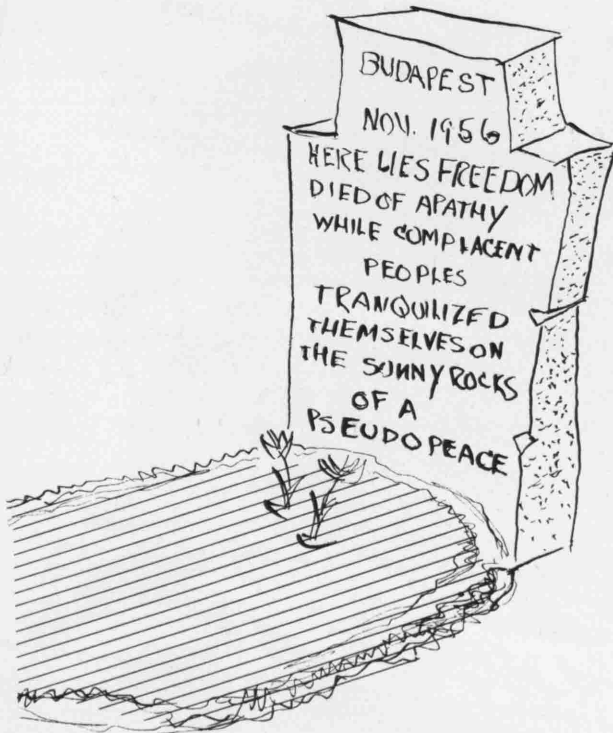 BUDAPEST
NOV. 1956
HERE LIES FREEDOM
DIED OF APATHY
WHILE COMPLACENT
PEOPLES
TRANQUILIZED
THEMSELVES ON
THE SUNNY ROCKS
OF A
PSEUDO PEACE